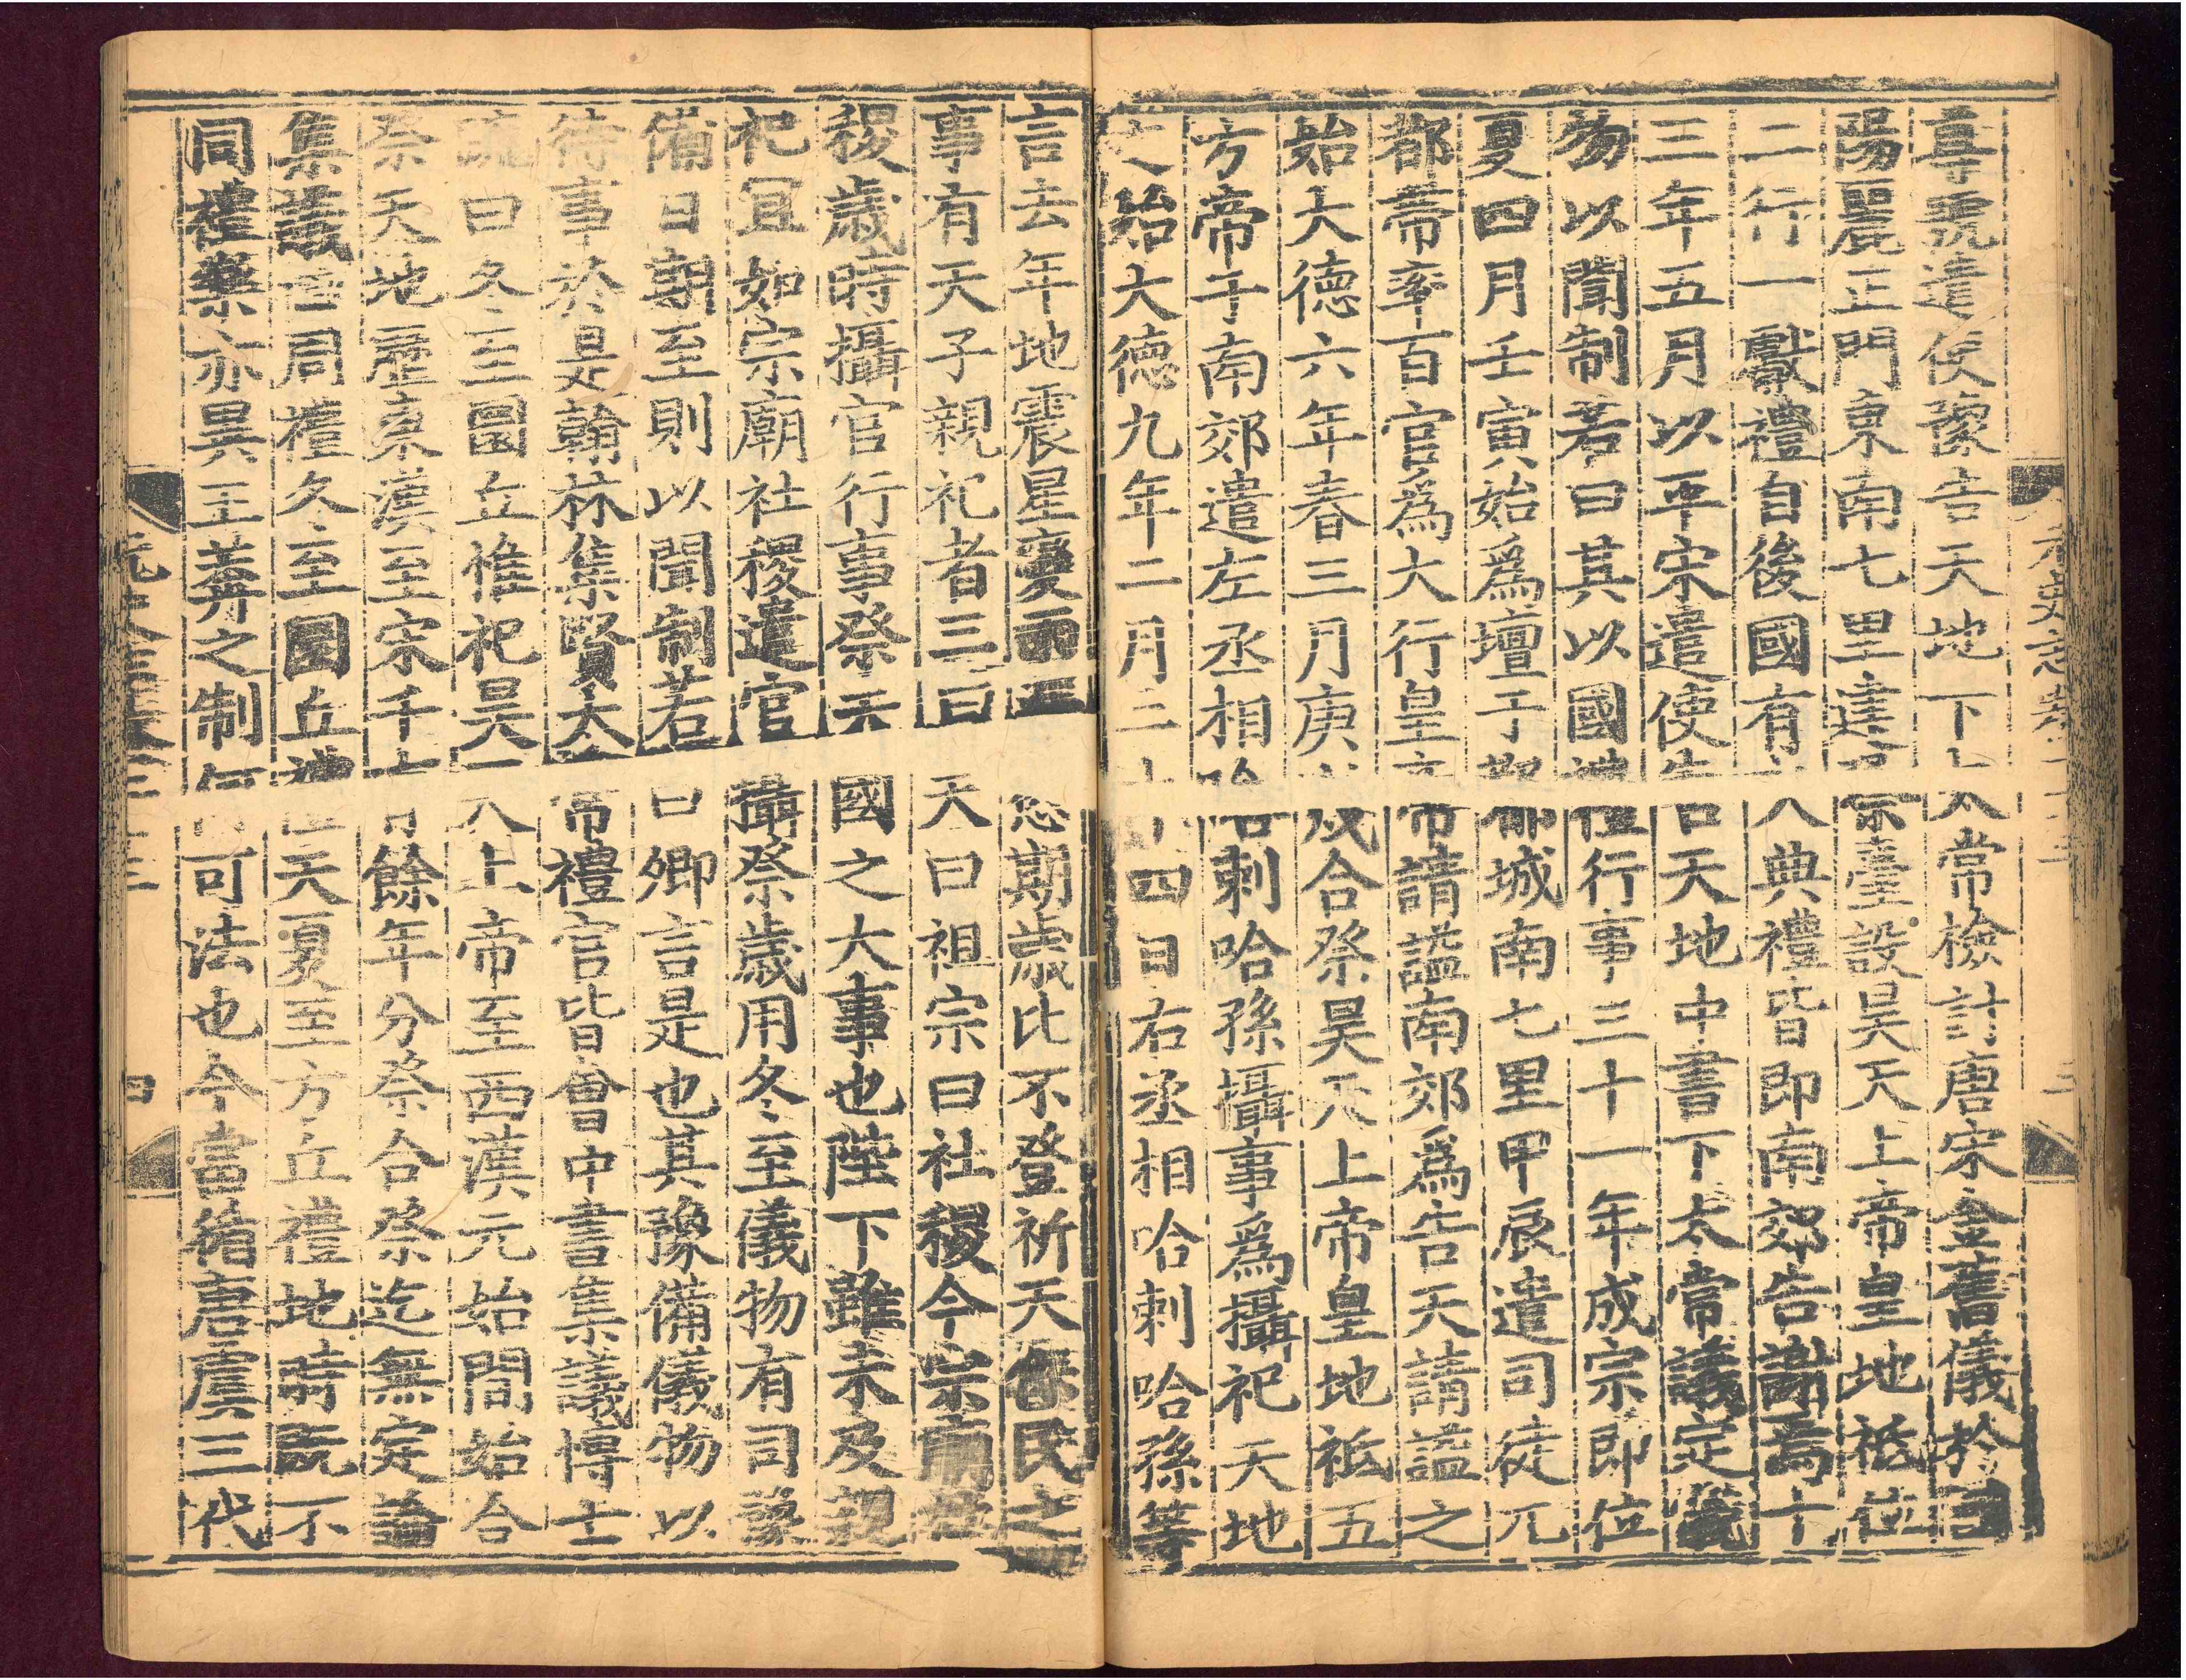 尊號遣使豫告天地下太常檢討唐宋金舊儀於國
陽麗正門東南七里建祭臺設昊天上帝皇地祇位
二行一獻禮自後國有大典禮皆即南郊告謝焉十
三年五月以平宋遣使告天地中書下太常議定儀
物以聞制若曰其以國禮行事三十一年成宗即位
夏四月壬寅始爲壇于都城南七里甲辰遣司徒兀
都帶率百官爲大行皇帝請謚南郊爲告天請謚之
始大德六年春三月庚戌合祭昊天上帝皇地祇五
方帝于南郊遣左丞相哈剌哈孫攝事爲攝祀天地
之始大德九年二月二十四日右丞相哈剌哈孫等
言去年地震星變雨澤愆期歲比不登祈天保民之
事有天子親祀者三曰天曰祖宗曰社稷今宗廟社
稷歲時攝官行事祭天國之大事也陛下雖未及親
祀宜如宗廟社稷遣官攝祭歲用冬至儀物有司豫
備日期至則以聞制若曰卿言是也其豫備儀物以
待事於是翰林集賢太常禮官皆會中書集議博士
疏曰冬至圜丘惟祀昊天上帝至西漢元始間始合
祭天地歷東漢至宋千有餘年分祭合祭迄無定論
集議曰周禮冬至圜丘禮天夏至方丘禮地時既不
同禮樂亦異王莽之制何可法也今當循唐虞三代
元史志卷二十三
三
四